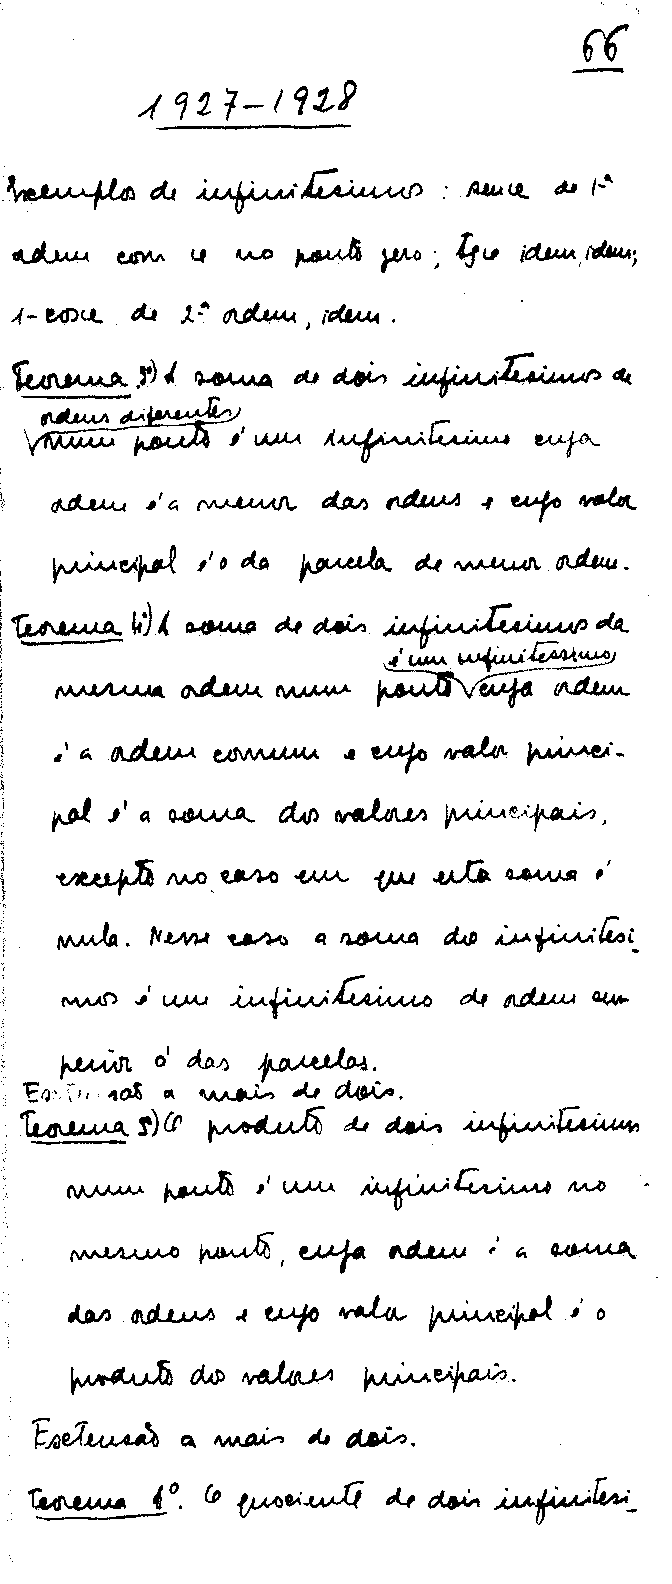 66
1927-1928
Exemplos de infinitésimos: senx de 1ª
ordem com x no ponto zero; tgx idem, idem;
1-cosx de 2ª ordem, idem.
Teorema 3º) A soma de dois infinitésimos de
ordens diferentes
num ponto é um infinitésimo cuja
ordem é a menor das ordens e cujo valor
principal é o da parcela de menor ordem.
Teorema 4º) A soma de dois infinitésimos da
é um infinitéssimo
mesma ordem num ponto cuja ordem
é a ordem comum e cujo valor princi-
pal é a soma dos valores principais,
excepto no caso em que esta soma é
nula. Nesse caso a soma dos infinitési-
mos é um infinitésimo de ordem su-
perior á das parcelas.
Extensão a mais de dois.
Teorema 5º) O produto de dois infinitésimos
num ponto é um infinitésimo no
mesmo ponto, cuja ordem é a soma
das ordens e cujo valor principal é o
produto dos valores principais.
Extensão a mais de dois.
Teorema 6º. O quociente de dois infinitési-